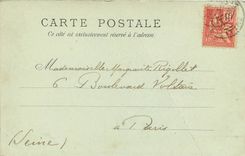 CARTE POSTALE
Ce côté est exclusivement réservé à l'adresse
Mademoiselle Marguerite Rigollet
6 Boulevard Voltaire
à Paris
(Seine)